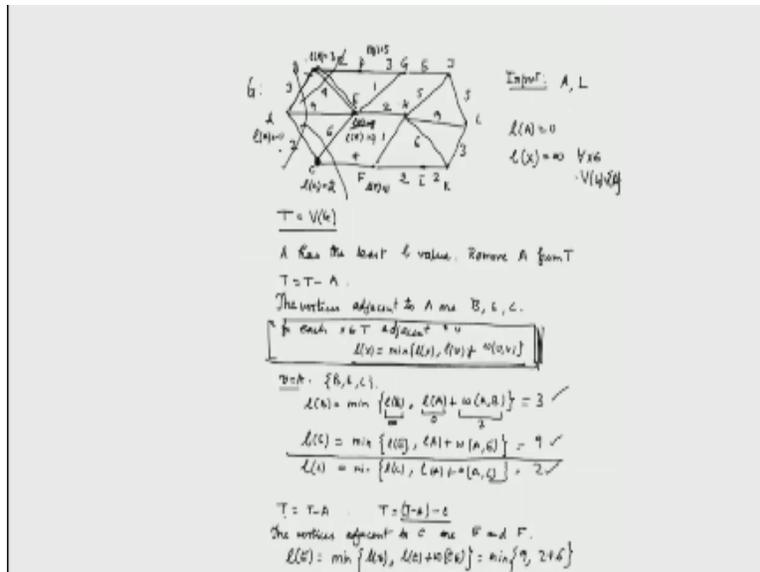 G:
B
l(B)=3
D
3
G
6
J
3
4
1
5
5
A
9
E
2
H
9
L
l(A)=0
6
1
6
3
2
C
4
F
2
I
2
K
l(C)=2
Input: A, L
l(A)=0
l(x)=∞ ∀x∈
V(G)\{A}
T = V(G)
A has the least l value. Remove A from T
T = T - A.
The vertices adjacent to A are B, E, C.
for each x∈T adjacent to v
l(x) = min{l(x), l(v)+ w(v,x)}
v=A. {B,E,C}.
l(B) = min {l(B), l(A)+ w(A,B)} = 3 ✓
∞ 0 3
l(E) = min {l(E), l(A)+ w(A,E)} = 9 ✓
l(C) = min {l(C), l(A)+ w(A,C)} = 2 ✓
T = T-A T = (T-A) - C
The vertices adjacent to C are E and F.
l(E) = min {l(E), l(C)+w(C,E)} = min{9, 2+6}